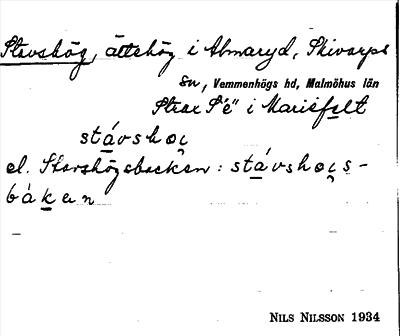 Stavshög, ättehög i Abmaryd, Skivarps
sn, Vemmenhögs hd, Malmöhus län
Strax S "é" i Mariefelt
stávshoç
el. Stavshögsbacken: stávshoçs-
bákan
NILS NILSSON 1934